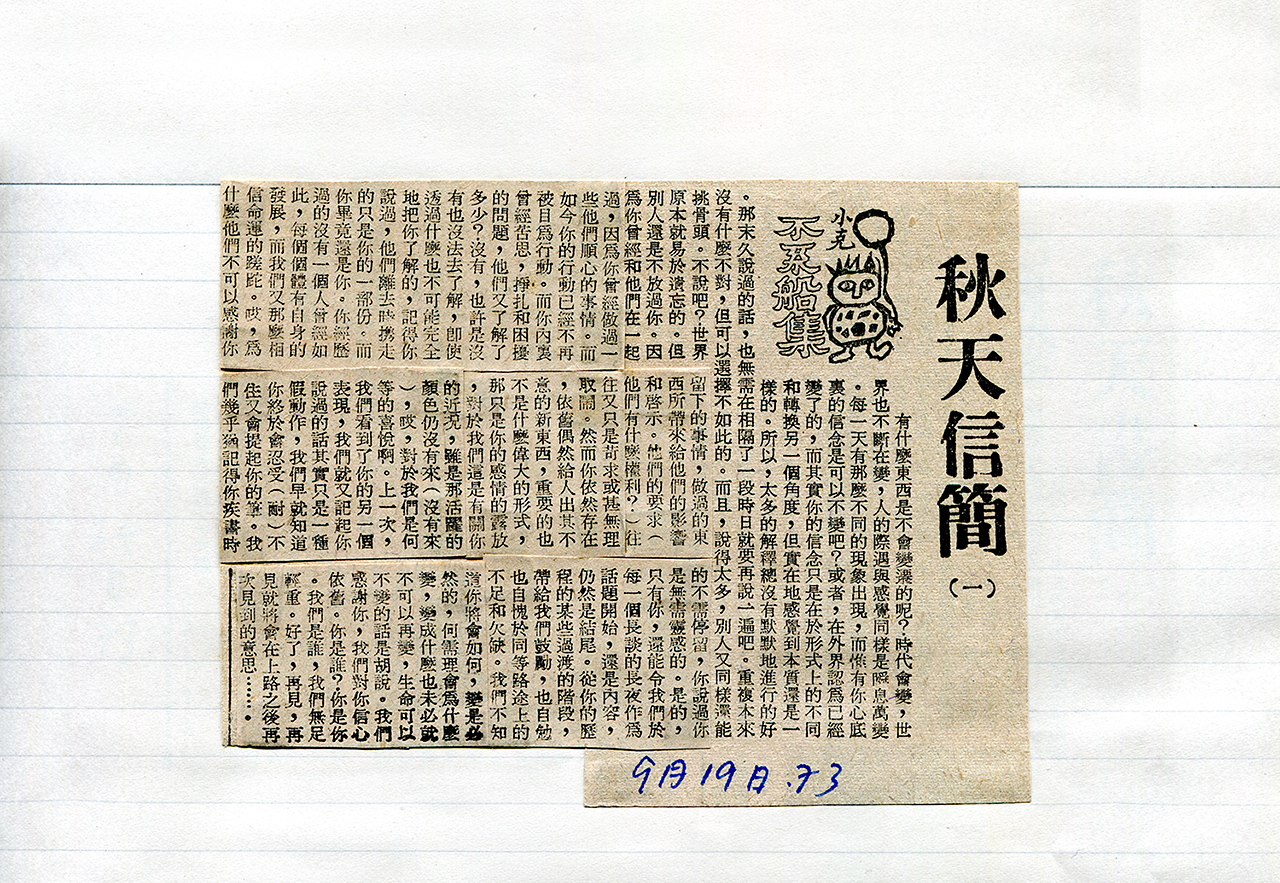 秋天信簡
(一)
小克
不系船集
有什麼東西是不會變的呢?時代會變,世
界也不斷在變,人的際遇與感覺同樣是瞬息萬變
。每一天有那麼不同的現象出現,而惟有你心底
裏的信念是可以不變吧?或者,在外界認爲已經
變了的,而其實你的信念只是在於形式上的不同
和轉換另一個角度,但實在地感覺到本質還是一
樣的。所以,太多的解釋總沒有默默地進行的好
。那末久說過的話,也無需在相隔了一段時日就要再說一遍吧。重複本來
沒有什麼不對,但可以選擇不如此的。而且,說得太多,別人又同樣還能
挑骨頭。不說吧?世界
原本就易於遺忘的。但
別人還是不放過你。因
爲你曾經和他們在一起
過,因爲你曾經做過一
些他們順心的事情。而
如今你的行動已經不再
被目爲行動。而你內裏
曾經苦思,掙扎和困擾
的問題,他們又了解了
多少?沒有,也許是沒
有也沒法去了解,即使
透過什麼也不可能完全
地把你了解的,記得你
說過,他們離去時携走
的只是你的一部份。而
你畢竟還是你。你經歷
過的沒有一個人曾經如
此,每個個體有自身的
發展,而我們又那麼相
信命運的蹉跎。哎,爲
什麼他們不可以感謝你
留下的事情,做過的東
西所帶來給他們的影響
和啓示。他們的要求(
他們有什麼權利?)往
往又只是苛求或甚無理
取鬧。然而你依然存在
,依舊偶然給人出其不
意的新東西,重要的也
不是什麼偉大的形式,
那只是你的感情的露放
,對於我們這是有關你
的近況,雖是那活躍的
顏色仍沒有來(沒有來
),哎,對於我們是何
等的喜悅啊。上一次,
我們看到了你的另一個
表現,我們就又記起你
說過的話其實只是一種
假動作,我們早就知道
你終於會忍受(耐)不
住又會提起你的筆。我
們幾乎猶記得你疾書時
的不需停留,你說過你
是無需靈感的。是的,
只有你,還能令我們於
每一個長談的長夜作爲
話題開始,還是內容,
仍然是結尾。從你的歷
程的某些過渡的階段,
帶給我們鼓勵,也自勉
也自愧於同等路途上的
不足和欠缺。我們不知
道你將會如何,變是必
然的,何需理會爲什麼
變,變成什麼也未必就
不可以再變,生命可以
不變的話是胡說。我們
感謝你,我們對你信心
依舊。你是誰?你是你
。我們是誰,我們無足
輕重。好了,再見,再
見就將會在上路之後再
次見到的意思……。
9月19日.73